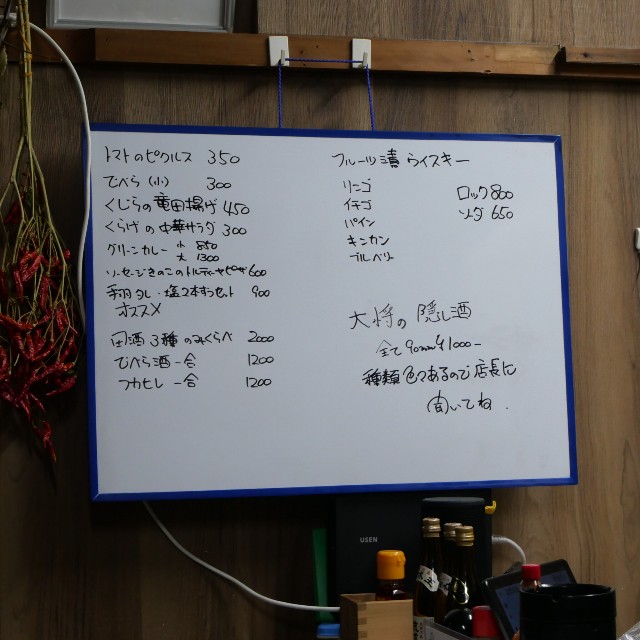 トマトのピクルス 350
でべら(小) 300
くじらの竜田揚げ 450
くらげの中華サラダ 300
グリーンカレー 小 850
大 1300
ソーセージきのこのトルティーヤピザ 600
手羽タレ・塩2本ずつセット 900
オススメ
田酒3種のみくらべ 2000
でべら酒 一合 1200
フカヒレ 一合 1200
フルーツ漬ウイスキー
リンゴ
イチゴ
パイン
キンカン
ブルーベリー
ロック 800
ソーダ 650
大将の隠し酒
全て90ml ¥1000-
種類色々あるので店長に
聞いてね.
USEN